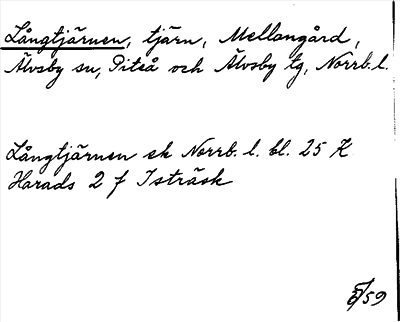 Långtjärnen, tjärn, Mellangård,
Älvsby sn, Piteå och Älvsby tg, Norrb. l.
Långtjärnen ek Norrb. l. bl. 25 K
Harads 2 f Isträsk
5/59